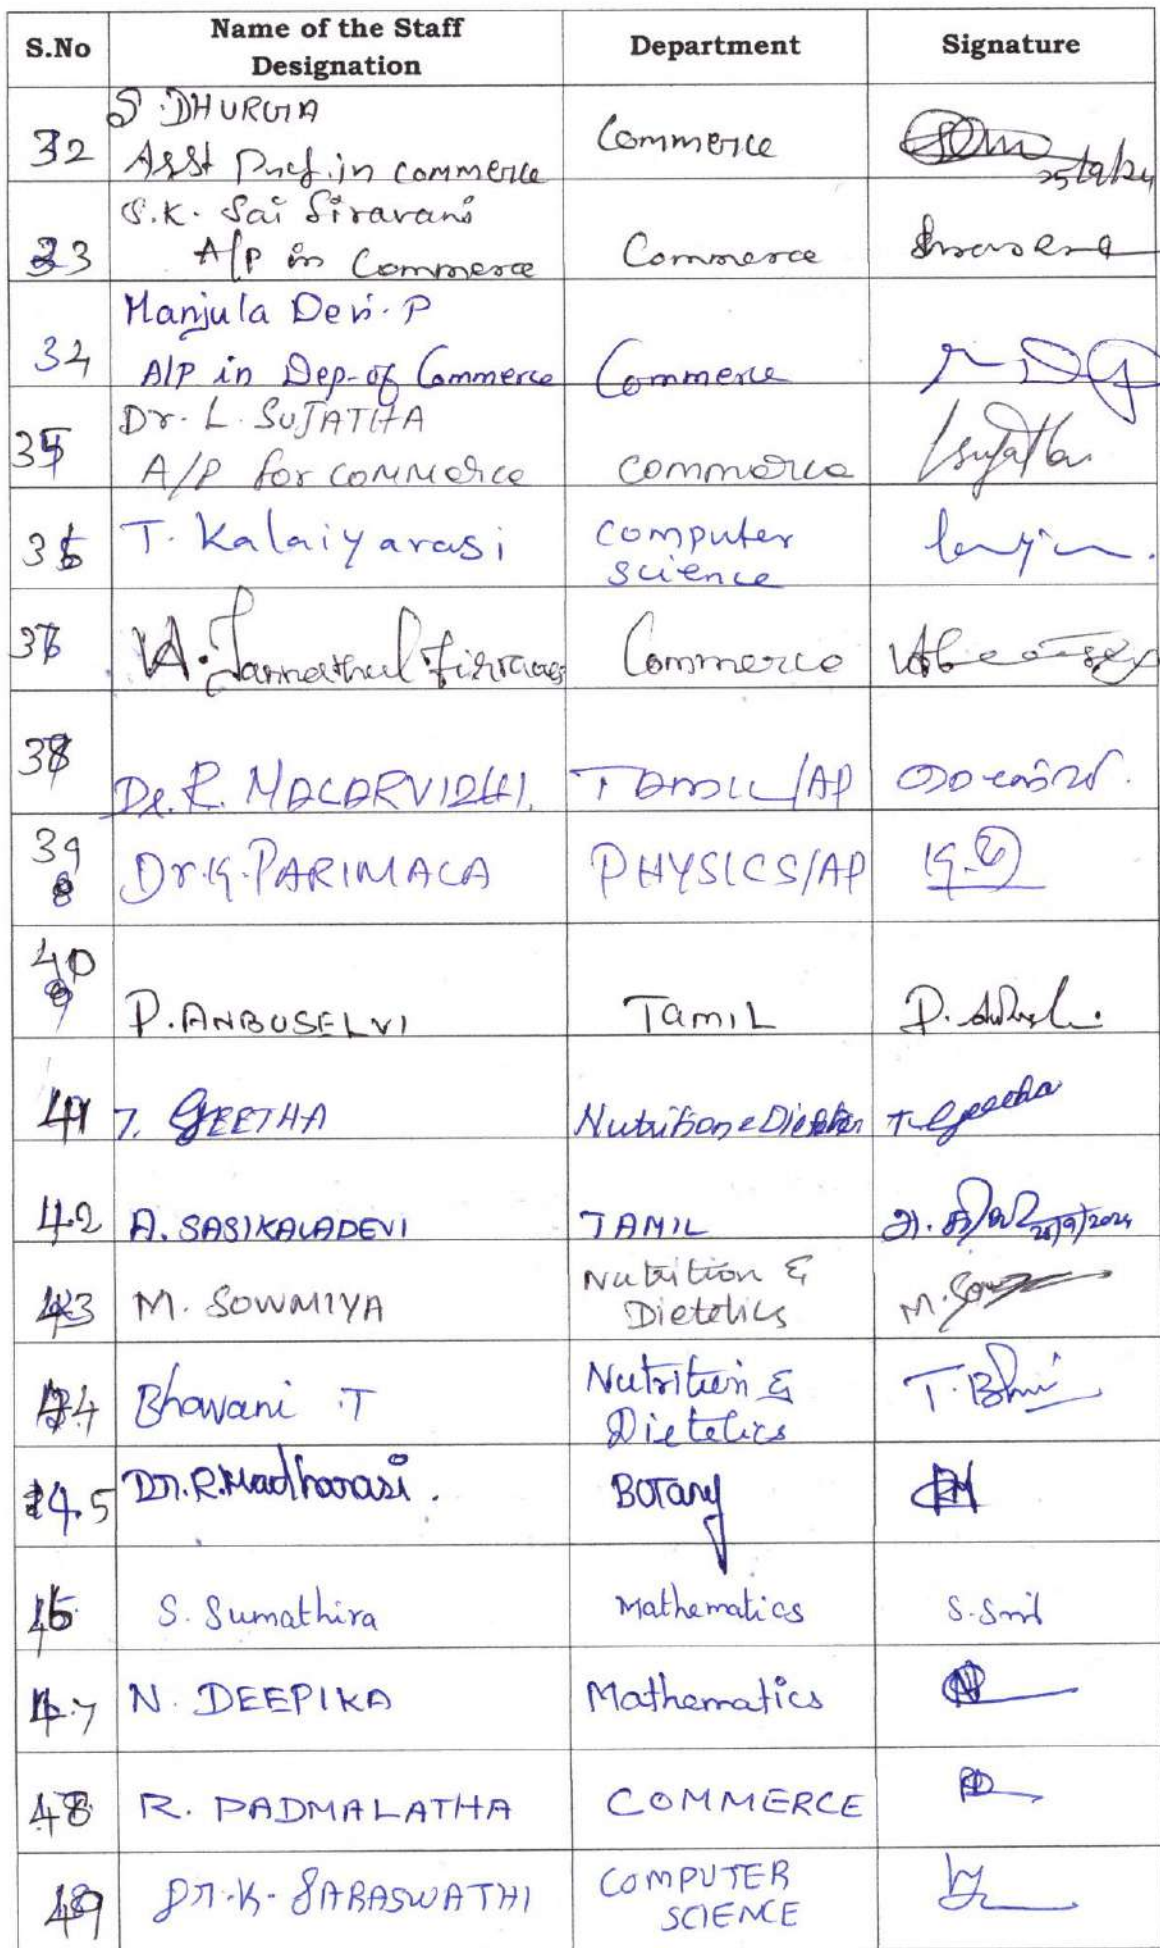 S.No Name of the Staff Designation Department Signature
32 S. DHURGA Commerce
Asst Prof. in commerce 25/9/24
33 S.K. Sai Siravani
A/P in Commerce Commerce
34 Manjula Devi. P
A/P in Dep-of Commerce Commerce
35 Dr. L. SUJATHA
A/P for commerce commerce Lsujatha
36 T. Kalaiyarasi computer
science
37 A. Jannathul firdous Commerce
38 Dr. R. MALARVIZHI. TAMIL/AP
39 Dr. G. PARIMALA PHYSICS/AP
40 P. ANBUSELVI TAMIL
41 T. GEETHA Nutrition & T. Geetha
42 A. SASIKALADEVI TAMIL 25/9/2024
43 M. SOWMIYA Nutrition &
Dietetics
44 Bhavani .T Nutrition &
Dietetics
45 Dr. R. Madharasi. Botany
46 S. Sumathira Mathematics
47 N. DEEPIKA Mathematics
48 R. PADMALATHA COMMERCE
49 Dr. K. SARASWATHI COMPUTER
SCIENCE